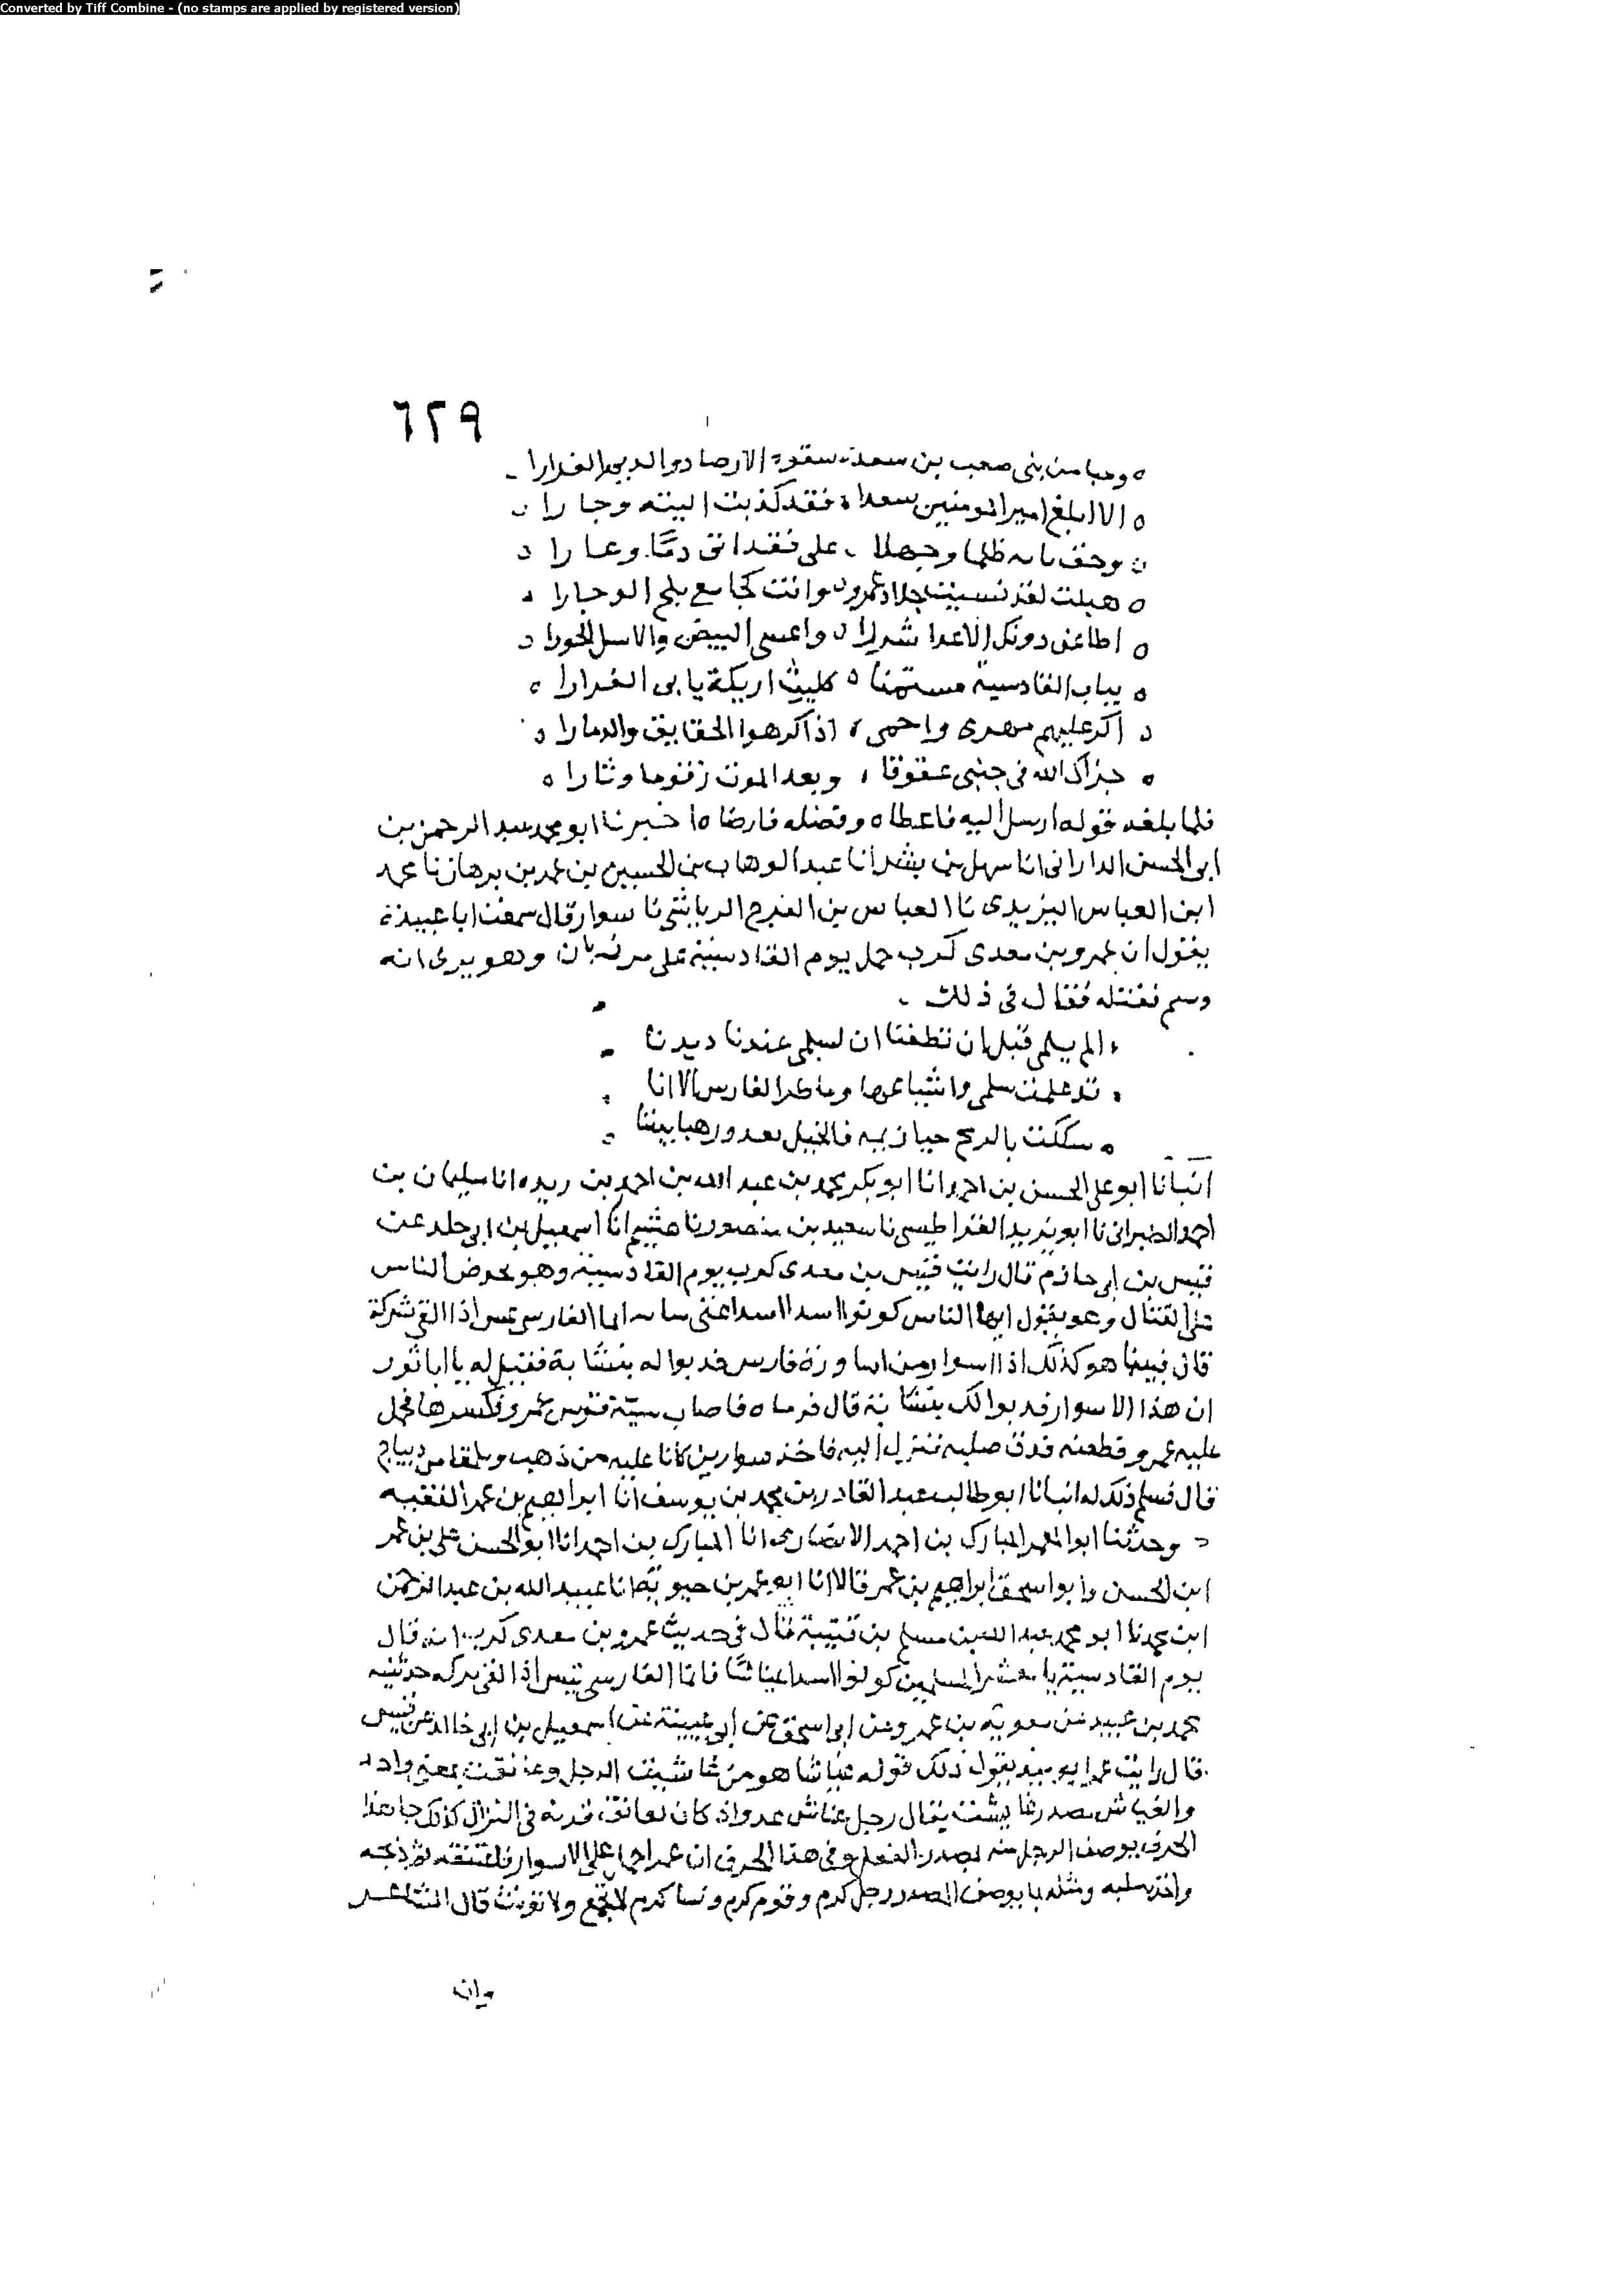 Converted by Tiff Combine - (no stamps are applied by registered version)
٦٢٩
وحيا من بني صعب بن سعد سقوه الارصاد والديم الغزارا
الا ابلغ امير المومنين سعدا فقد كذبت اليته وجارا
ظلما وجهلا على فقد اتى ذما وعارا
هبلت لقد نسيت جلاد عمرو وانت كخامع يلج الوجارا
اطاعن دونك الاعدا شزرا واغشى البيض والاسل الحرارا
بباب القادسية مستميتا كليث اريكة يابى الفرارا
اكر عليهم مهرى واحمى اذا كرهوا الحقايق والذمارا
جزاك الله فى جنبى عقوقا وبعد الموت زقوما ونارا
فلما بلغه قوله ارسل اليه فاعطاه وفضله فارضاه اخبرنا ابو محمد عبد الرحمن بن
ابى الحسن الدارانى انا سهل بن بشر انا عبد الوهاب بن الحسين بن عمر بن برهان نا محمد
ابن العباس اليزيدى نا العباس بن الفرج الرياشى نا سوار قال سمعت ابا عبيدة
يقول ان عمرو بن معدى كرب حمل يوم القادسية على مرزبان وهو يرى انه
رستم فقتله فقال فى ذلك
الم بسلمى قبل ان تظعنا ان لسلمى عندنا ديدنا
قد علمت سلمى واشياعها ما قطر الفارس الا انا
شككت بالرمح حيازيمه فالخيل تعدو زهبا بيننا
انبانا ابو على الحسن بن احمد انا ابو بكر محمد بن عبد الله بن احمد بن ريذه انا سليمان بن
احمد الطبرانى نا ابو يزيد القراطيسى نا سعيد بن منصور نا هشيم انا اسمعيل بن ابى خلد عن
قيس بن ابى حازم قال رايت قيس بن معدى كرب يوم القادسية وهو يحرض الناس
على القتال وهو يقول ايها الناس كونوا اسدا اسدا اغنى شانه انما الفارسى تيس اذا القى نيزكه
قال فبينا هو كذلك اذا اسوار من اساورة فارس قد بوا له بنشابة فقيل له يا ابا ثور
ان هذا الاسوار قد بوا لك بنشابة قال فرماه فاصاب سية قوس عمرو فكسرها فحمل
عليه عمرو فطعنه فدق صلبه فنزل اليه فاخذ سوارين كانا عليه من ذهب ويلمقا من ديباج
قال فسلم ذلك له انبانا ابو طالب عبد القادر بن محمد بن يوسف انا ابراهيم بن عمر الفقيه
وحدثنا ابو المعمر المبارك بن احمد الانصارى انا المبارك بن احمد انا ابو الحسن على بن عمر
ابن الحسن وابو اسحق ابراهيم بن عمر قالا انا ابو عمر بن حيويه انا عبيد الله بن عبد الرحمن
ابن محمد نا ابو محمد عبد الله بن مسلم بن قتيبة قال فى حديث عمرو بن معدى كرب انه قال
يوم القادسية يا معشر المسلمين كونوا اسدا عناشا فانما الفارسى تيس اذا القى نيزكه حدثنيه
محمد بن عبيد عن معوية بن عمرو عن ابى اسحق عن ابن عيينة عن اسمعيل بن ابى خالد عن قيس
قال رايت عمرا يوميذ يقول ذلك قوله عناشا هو من عانشت الرجل وعانقت بمعنى واحد
والعناش مصدر عانشت يقال رجل عناش عدو اذا كان يعانق قرنه فى النزال كذلك جا هذا
الحرف يوصف الرجل منه بمصدر الفعل وفى هذا الحرف ان عمرا حمل على الاسوار فاعتنقه ثم ذبحه
واخذ سلبه ومثله مما يوصف بالمصدر رجل كرم وقوم كرم ونسا كرم لا يجمع ولا يونث قال الشاعر
وان